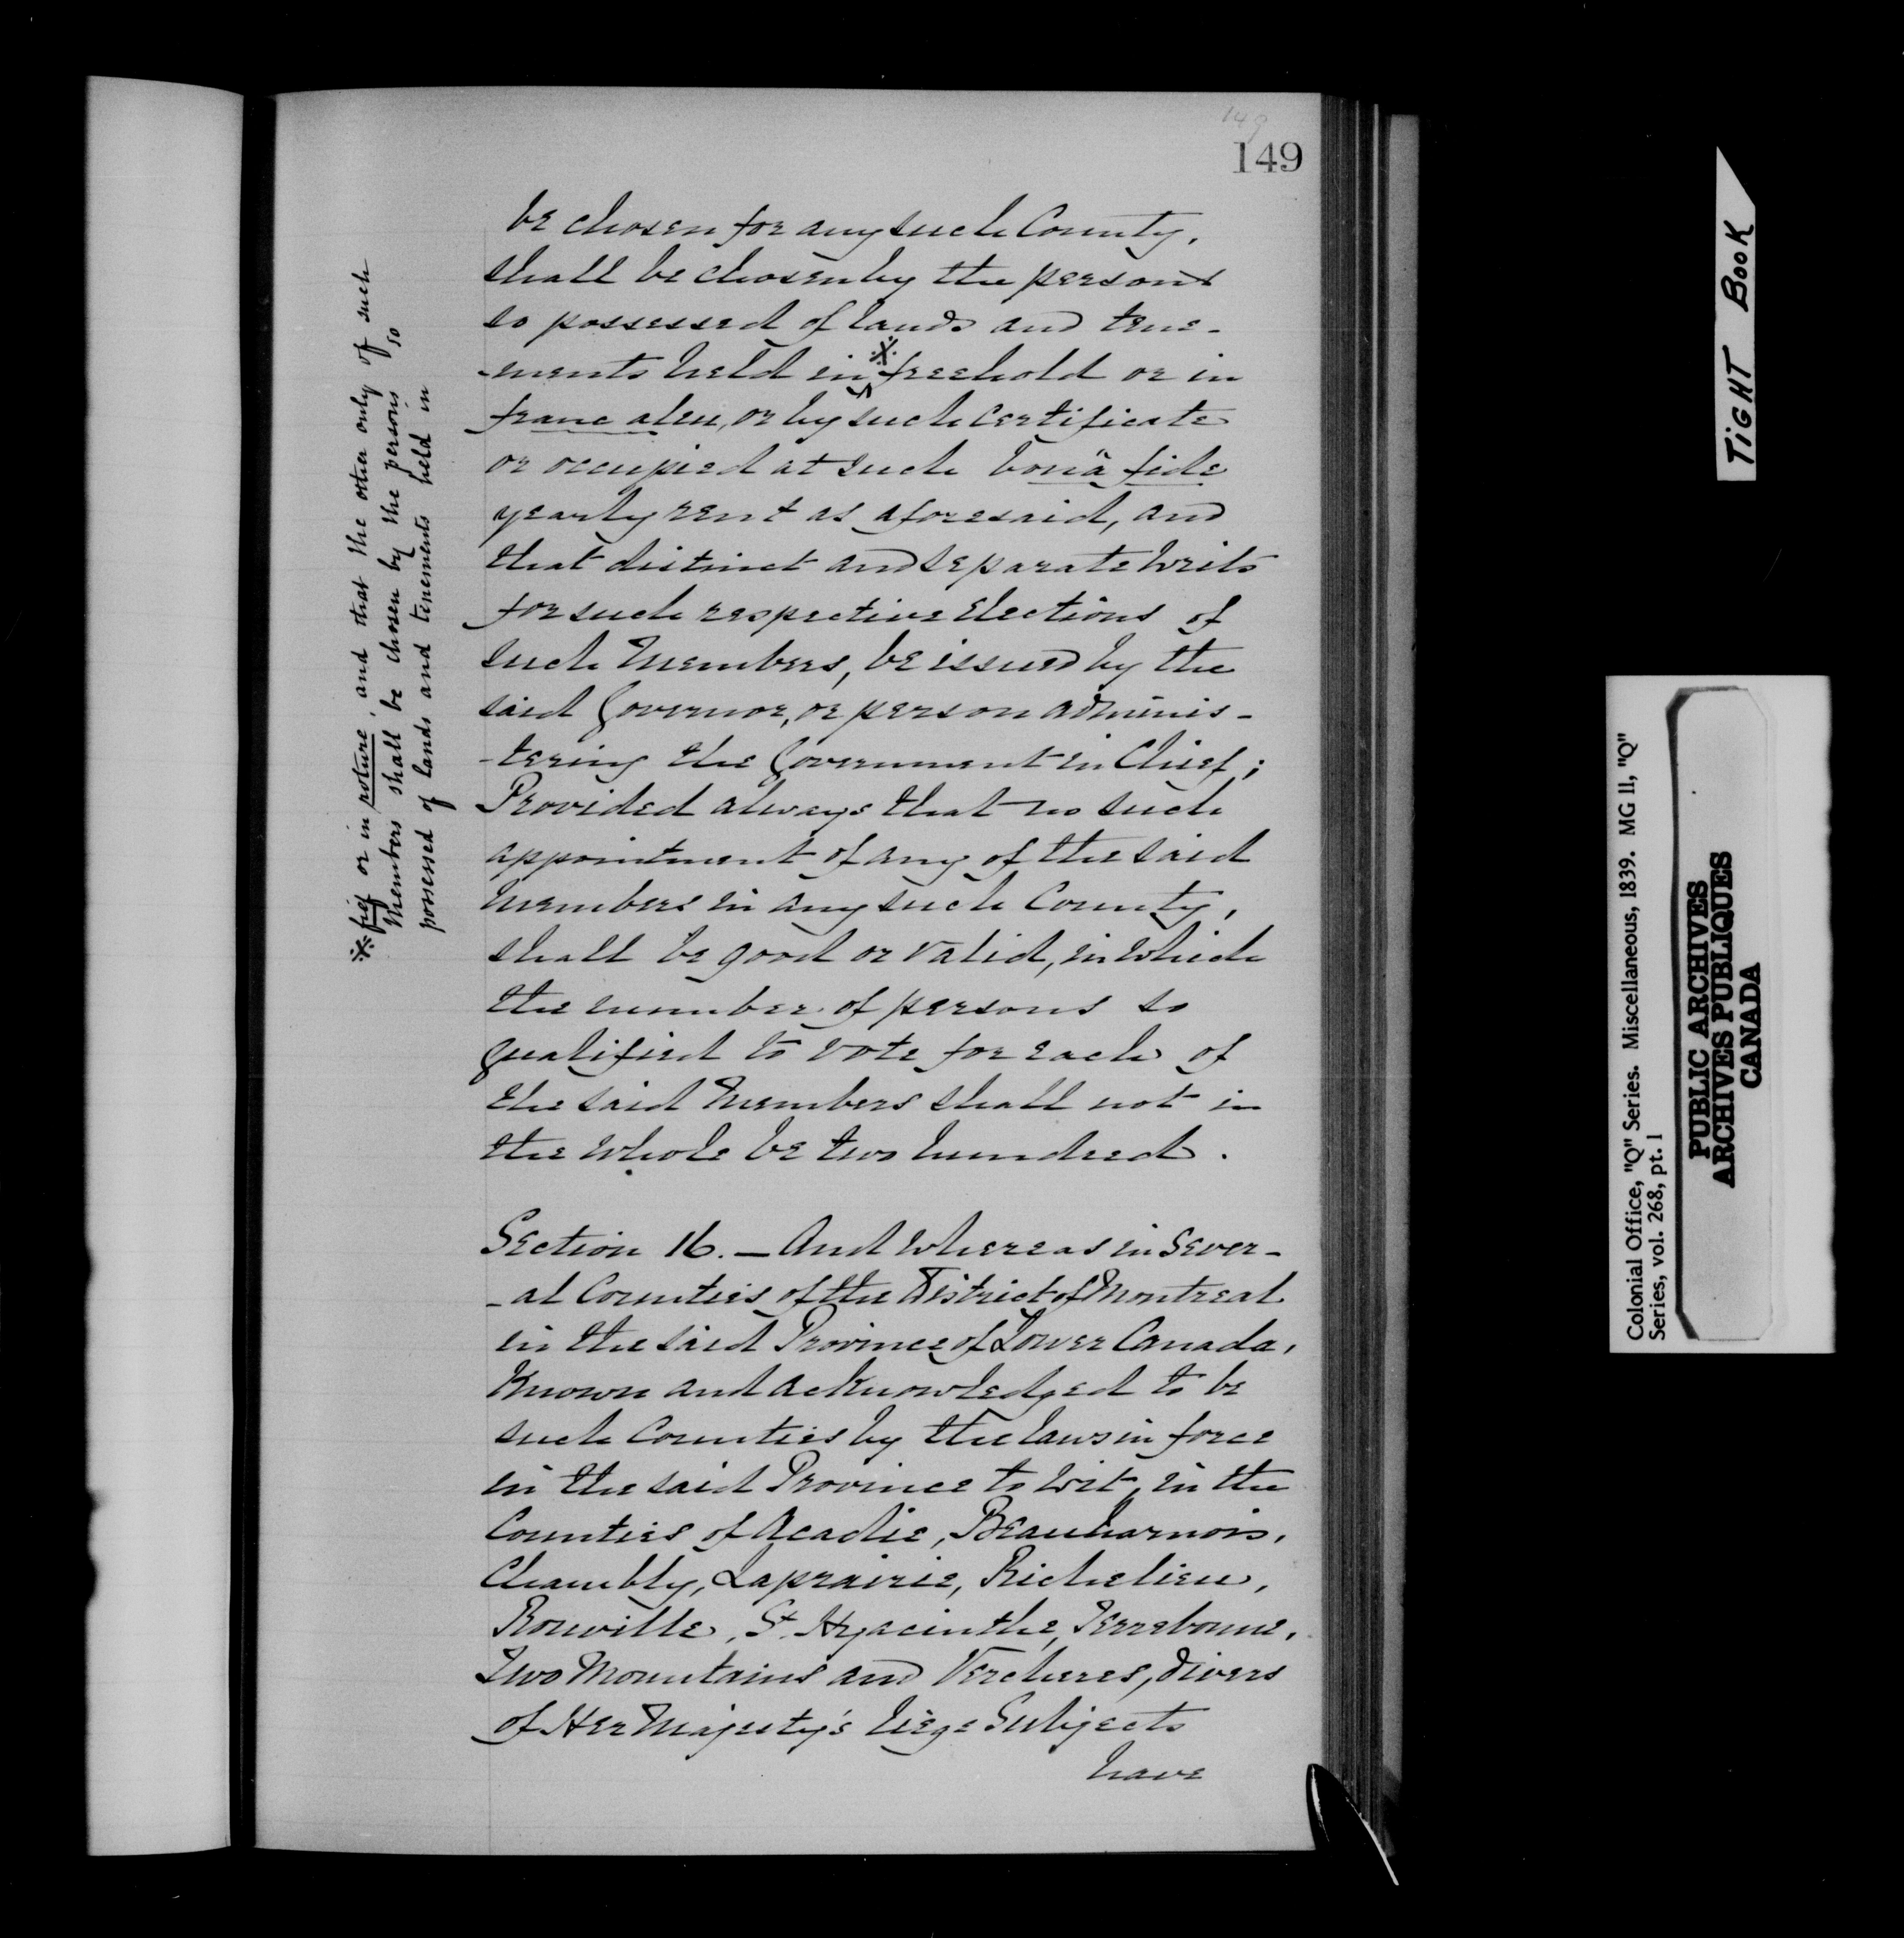 149
149
be chosen for any such County,
shall be chosen by the persons
so possessed of lands and tene-
-ments held in ※ freehold or in
franc aleu, or by such certificate
or occupied at such bonâ fide
yearly rent as aforesaid, and
that distinct and separate Writs
for such respective Elections of
such Members, be issued by the
said Governor, or person adminis-
-tering the Government in Chief;
Provided always that no such
appointment of any of the said
Members in any such County,
shall be good or valid, in which
the number of persons so
qualified to vote for each of
the said Members shall not in
the whole be two hundred.
Section 16. — And whereas in sever-
-al Counties of the District of Montreal
in the said Province of Lower Canada,
Known and acknowledged to be
such Counties by the laws in force
in the said Province to wit, in the
Counties of Acadie, Beauharnois,
Chambly, Laprairie, Richelieu,
Rouville, St. Hyacinthe, Terrebonne,
Two Mountains and Vercheres, divers
of Her Majesty's liege Subjects
have
※ fief or in roture, and that the other only of such
Members shall be chosen by the persons so
possessed of lands and tenements held in
TIGHT BOOK
Colonial Office, "Q" Series. Miscellaneous, 1839. MG 11, "Q"
Series, vol. 268, pt. 1
PUBLIC ARCHIVES
ARCHIVES PUBLIQUES
CANADA